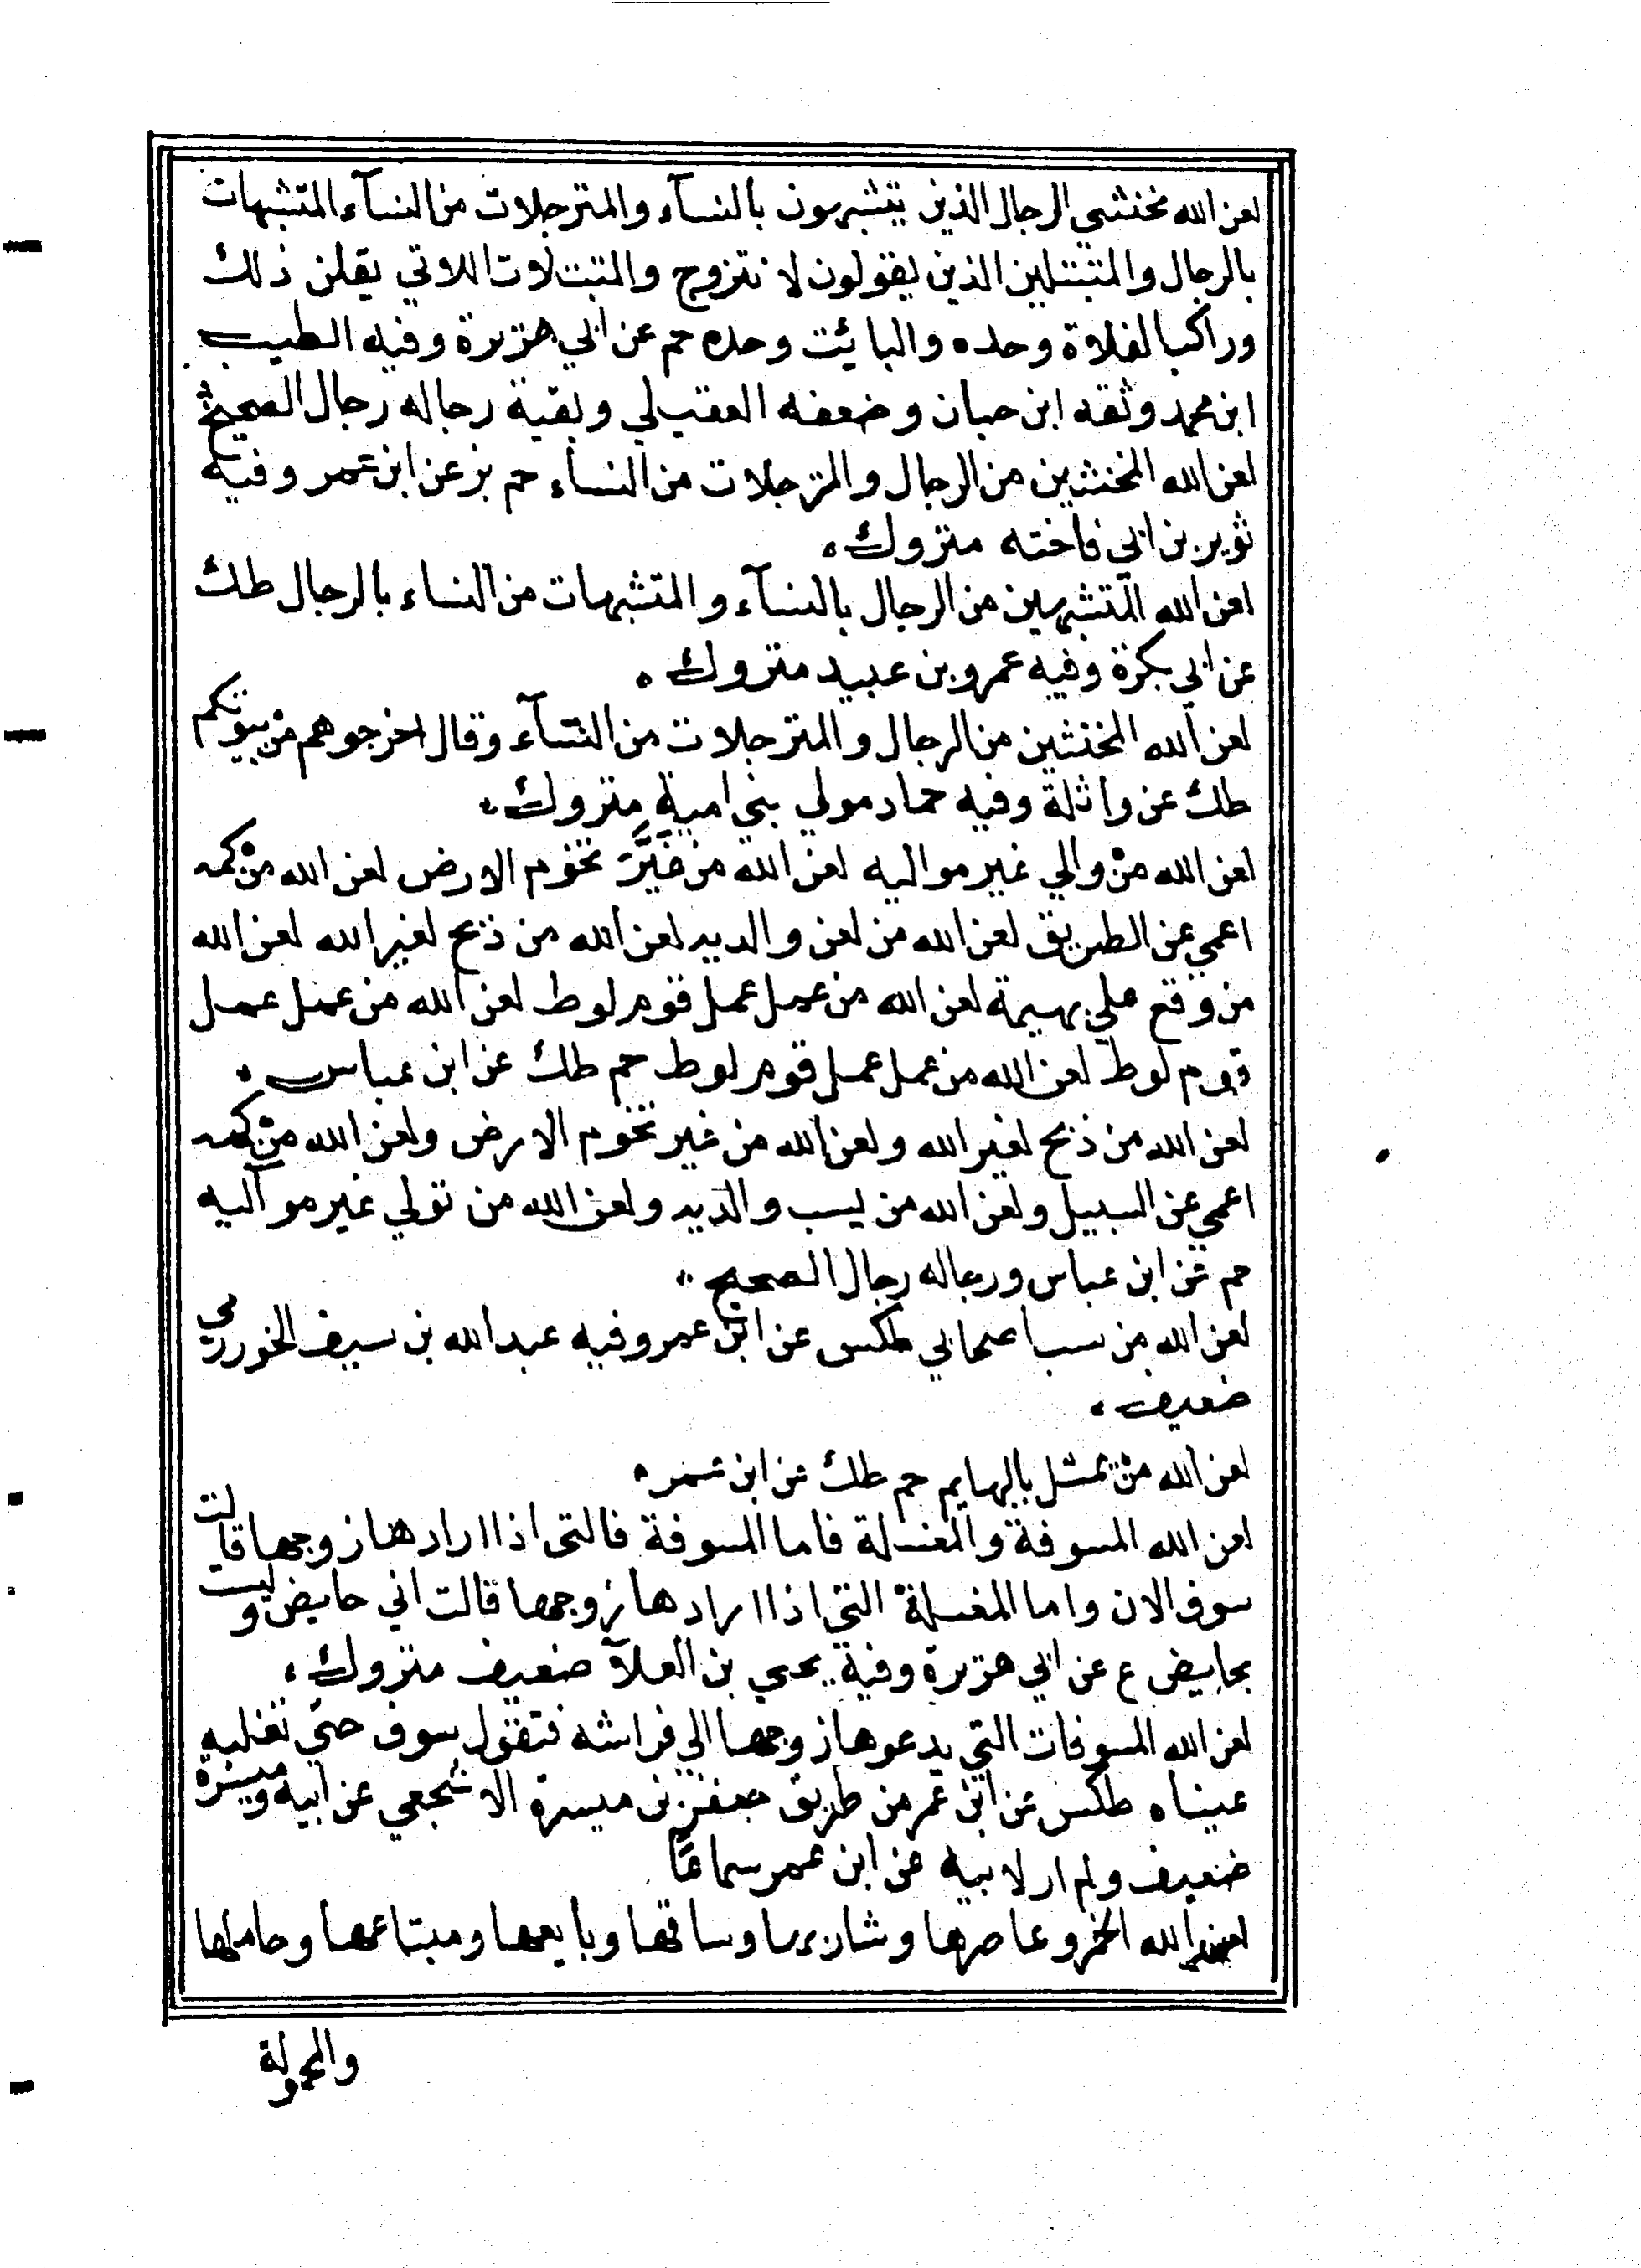 لعن الله مخنثي الرجال الذين يتشبهون بالنسآء والمترجلات من النسآء المتشبهات
بالرجال والمتبتلين الذين يقولون لا نتزوج والمتبتلات اللاتي يقلن ذلك
وراكب الفلاة وحده والبائت وحده حم عن ابي هريرة وفيه الطيب
ابن محمد وثقه ابن حبان وضعفه العقيلي وبقية رجاله رجال الصحيح
لعن الله المخنثين من الرجال والمترجلات من النساء حم بز عن ابن عمر وفيه
ثوير بن ابي فاخته متروك
لعن الله المتشبهين من الرجال بالنسآء والمتشبهات من النساء بالرجال طك
عن ابي بكرة وفيه عمرو بن عبيد متروك
لعن الله المخنثين من الرجال والمترجلات من النسآء وقال اخرجوهم من بيوتكم
طك عن واثلة وفيه حماد مولي بني امية متروك
لعن الله من والي غير مواليه لعن الله من غَيَّرَ تخوم الارض لعن الله من كمه
اعمي عن الطريق لعن الله من لعن والديه لعن الله من ذبح لغير الله لعن الله
من وقع علي بهيمة لعن الله من عمل عمل قوم لوط لعن الله من عمل عمل
قوم لوط لعن الله من عمل عمل قوم لوط حم طك عن ابن عباس
لعن الله من ذبح لغير الله ولعن الله من غير تخوم الارض ولعن الله من كمه
اعمي عن السبيل ولعن الله من يسب والديه ولعن الله من تولي غير موآليه
حم عن ابن عباس ورجاله رجال الصحيح
لعن الله من سب اصحابي طكس عن ابن عمر وفيه عبد الله بن سيف الخوارزمي
ضعيف
لعن الله من يمثل بالبهايم حم طك عن ابن عمر
لعن الله المسوفة والمغسلة فاما المسوفة فالتي اذا ارادها زوجها قالت
سوف الان واما المغسلة التي اذا ارادها زوجها قالت اني حايض وليست
بحايض ع عن ابي هريرة وفية يحيي بن العلآ ضعيف متروك
لعن الله المسوفات التي يدعوها زوجها الي فراشه فتقول سوف حتي تغلبه
عيناه طكس عن ابن عمر من طريق جعفر بن ميسرة الاشجعي عن ابيه وميسرة
ضعيف ولم ار لابيه عن ابن عمر سماعًا
لعن الله الخمر وعاصرها وشاربها وساقها وبايعها ومبتاعها وحاملها
والمحمولة